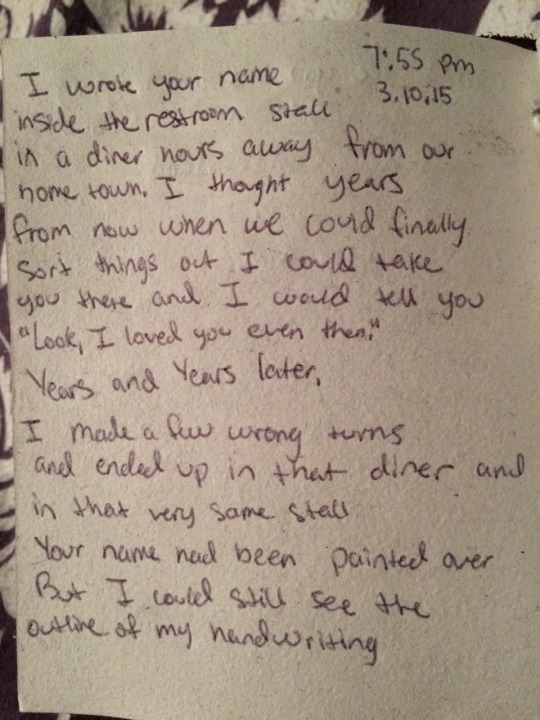 7:55 pm
3.10.15
I wrote your name
inside the restroom stall
in a diner hours away from our
home town. I thought years
from now when we could finally
sort things out I could take
you there and I would tell you
"Look, I loved you even then."
Years and Years later,
I made a few wrong turns
and ended up in that diner and
in that very same stall
Your name had been painted over
But I could still see the
outline of my handwriting